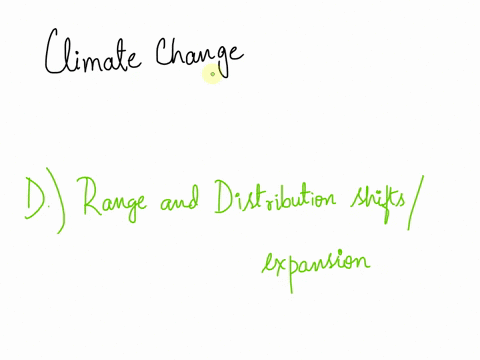 Climate Change
D.) Range and Distribution shifts/
expansion